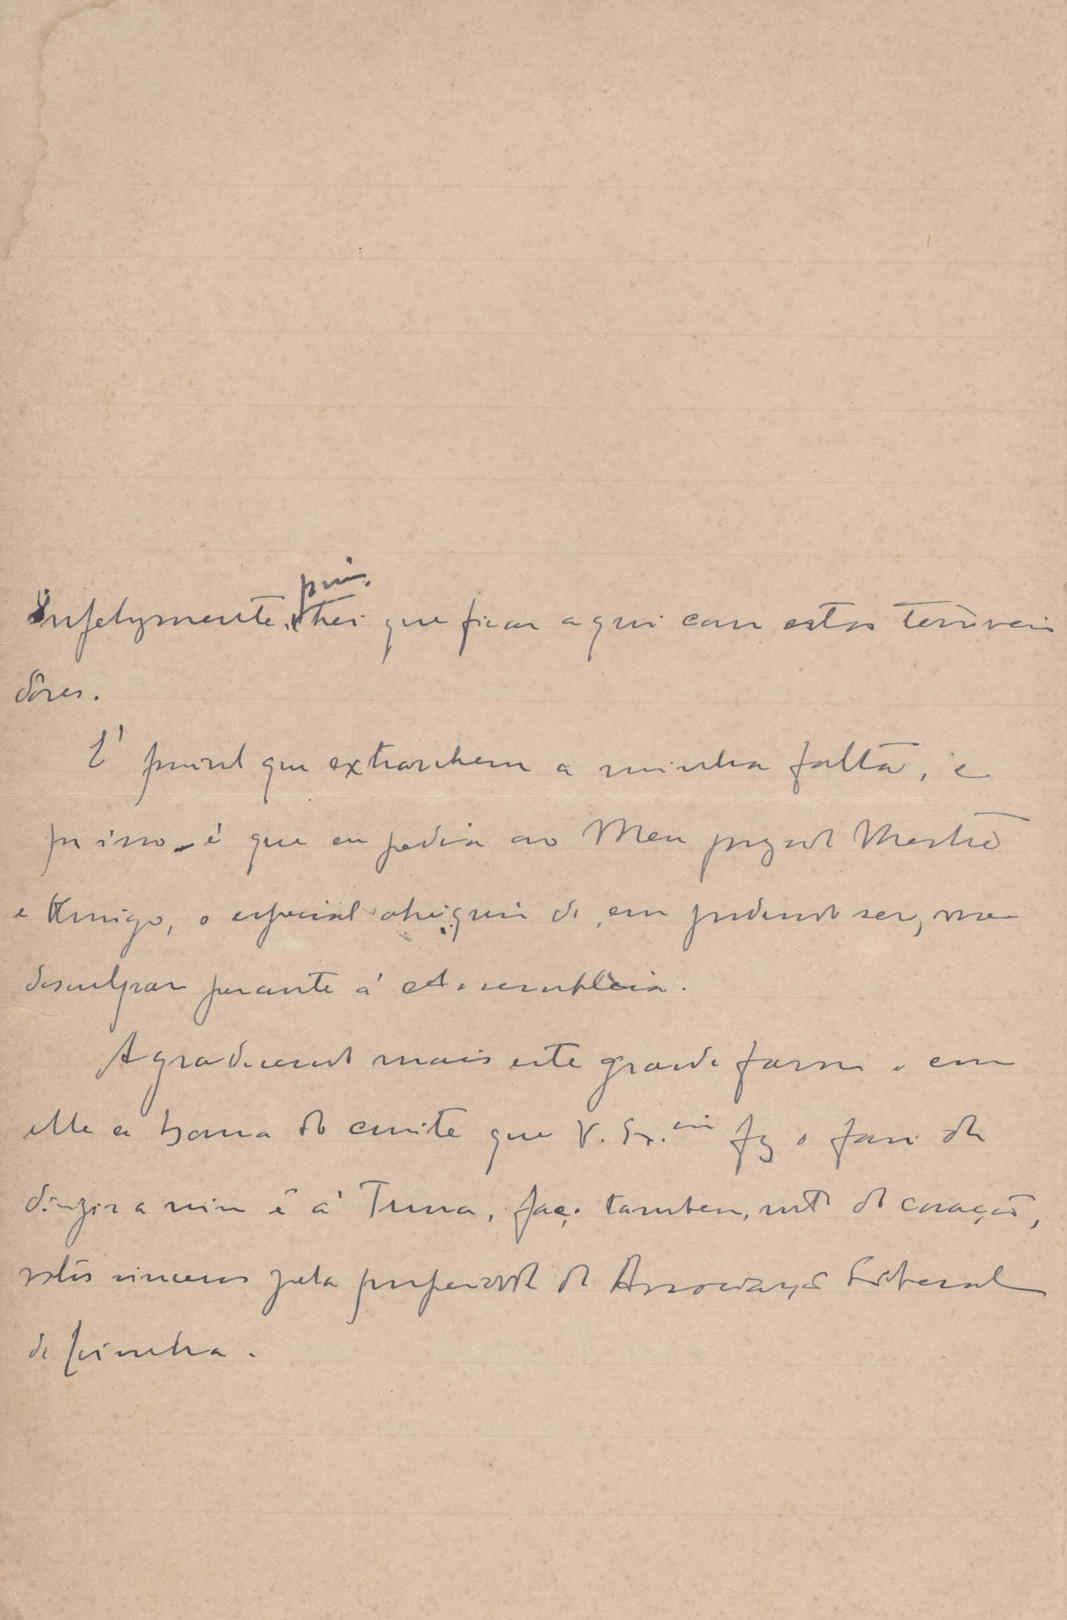 Infelizmente, pois, hei que ficar aqui com estas terriveis
dôres.
É possivel que extranhem a minha falta, e
por isso é que eu pedia ao Meu prezado Mestre
e Amigo, o especial obsequio de, em podendo ser, me
desculpar perante á Assembleia.
Agradecendo mais este grande favor e em
elle a honra do convite que V. Ex.cia fez o favor de
dirigir a mim e á Tuna, faço tambem, mto de coração,
votos sinceros pela prosperidade da Associação Liberal
de Coimbra.